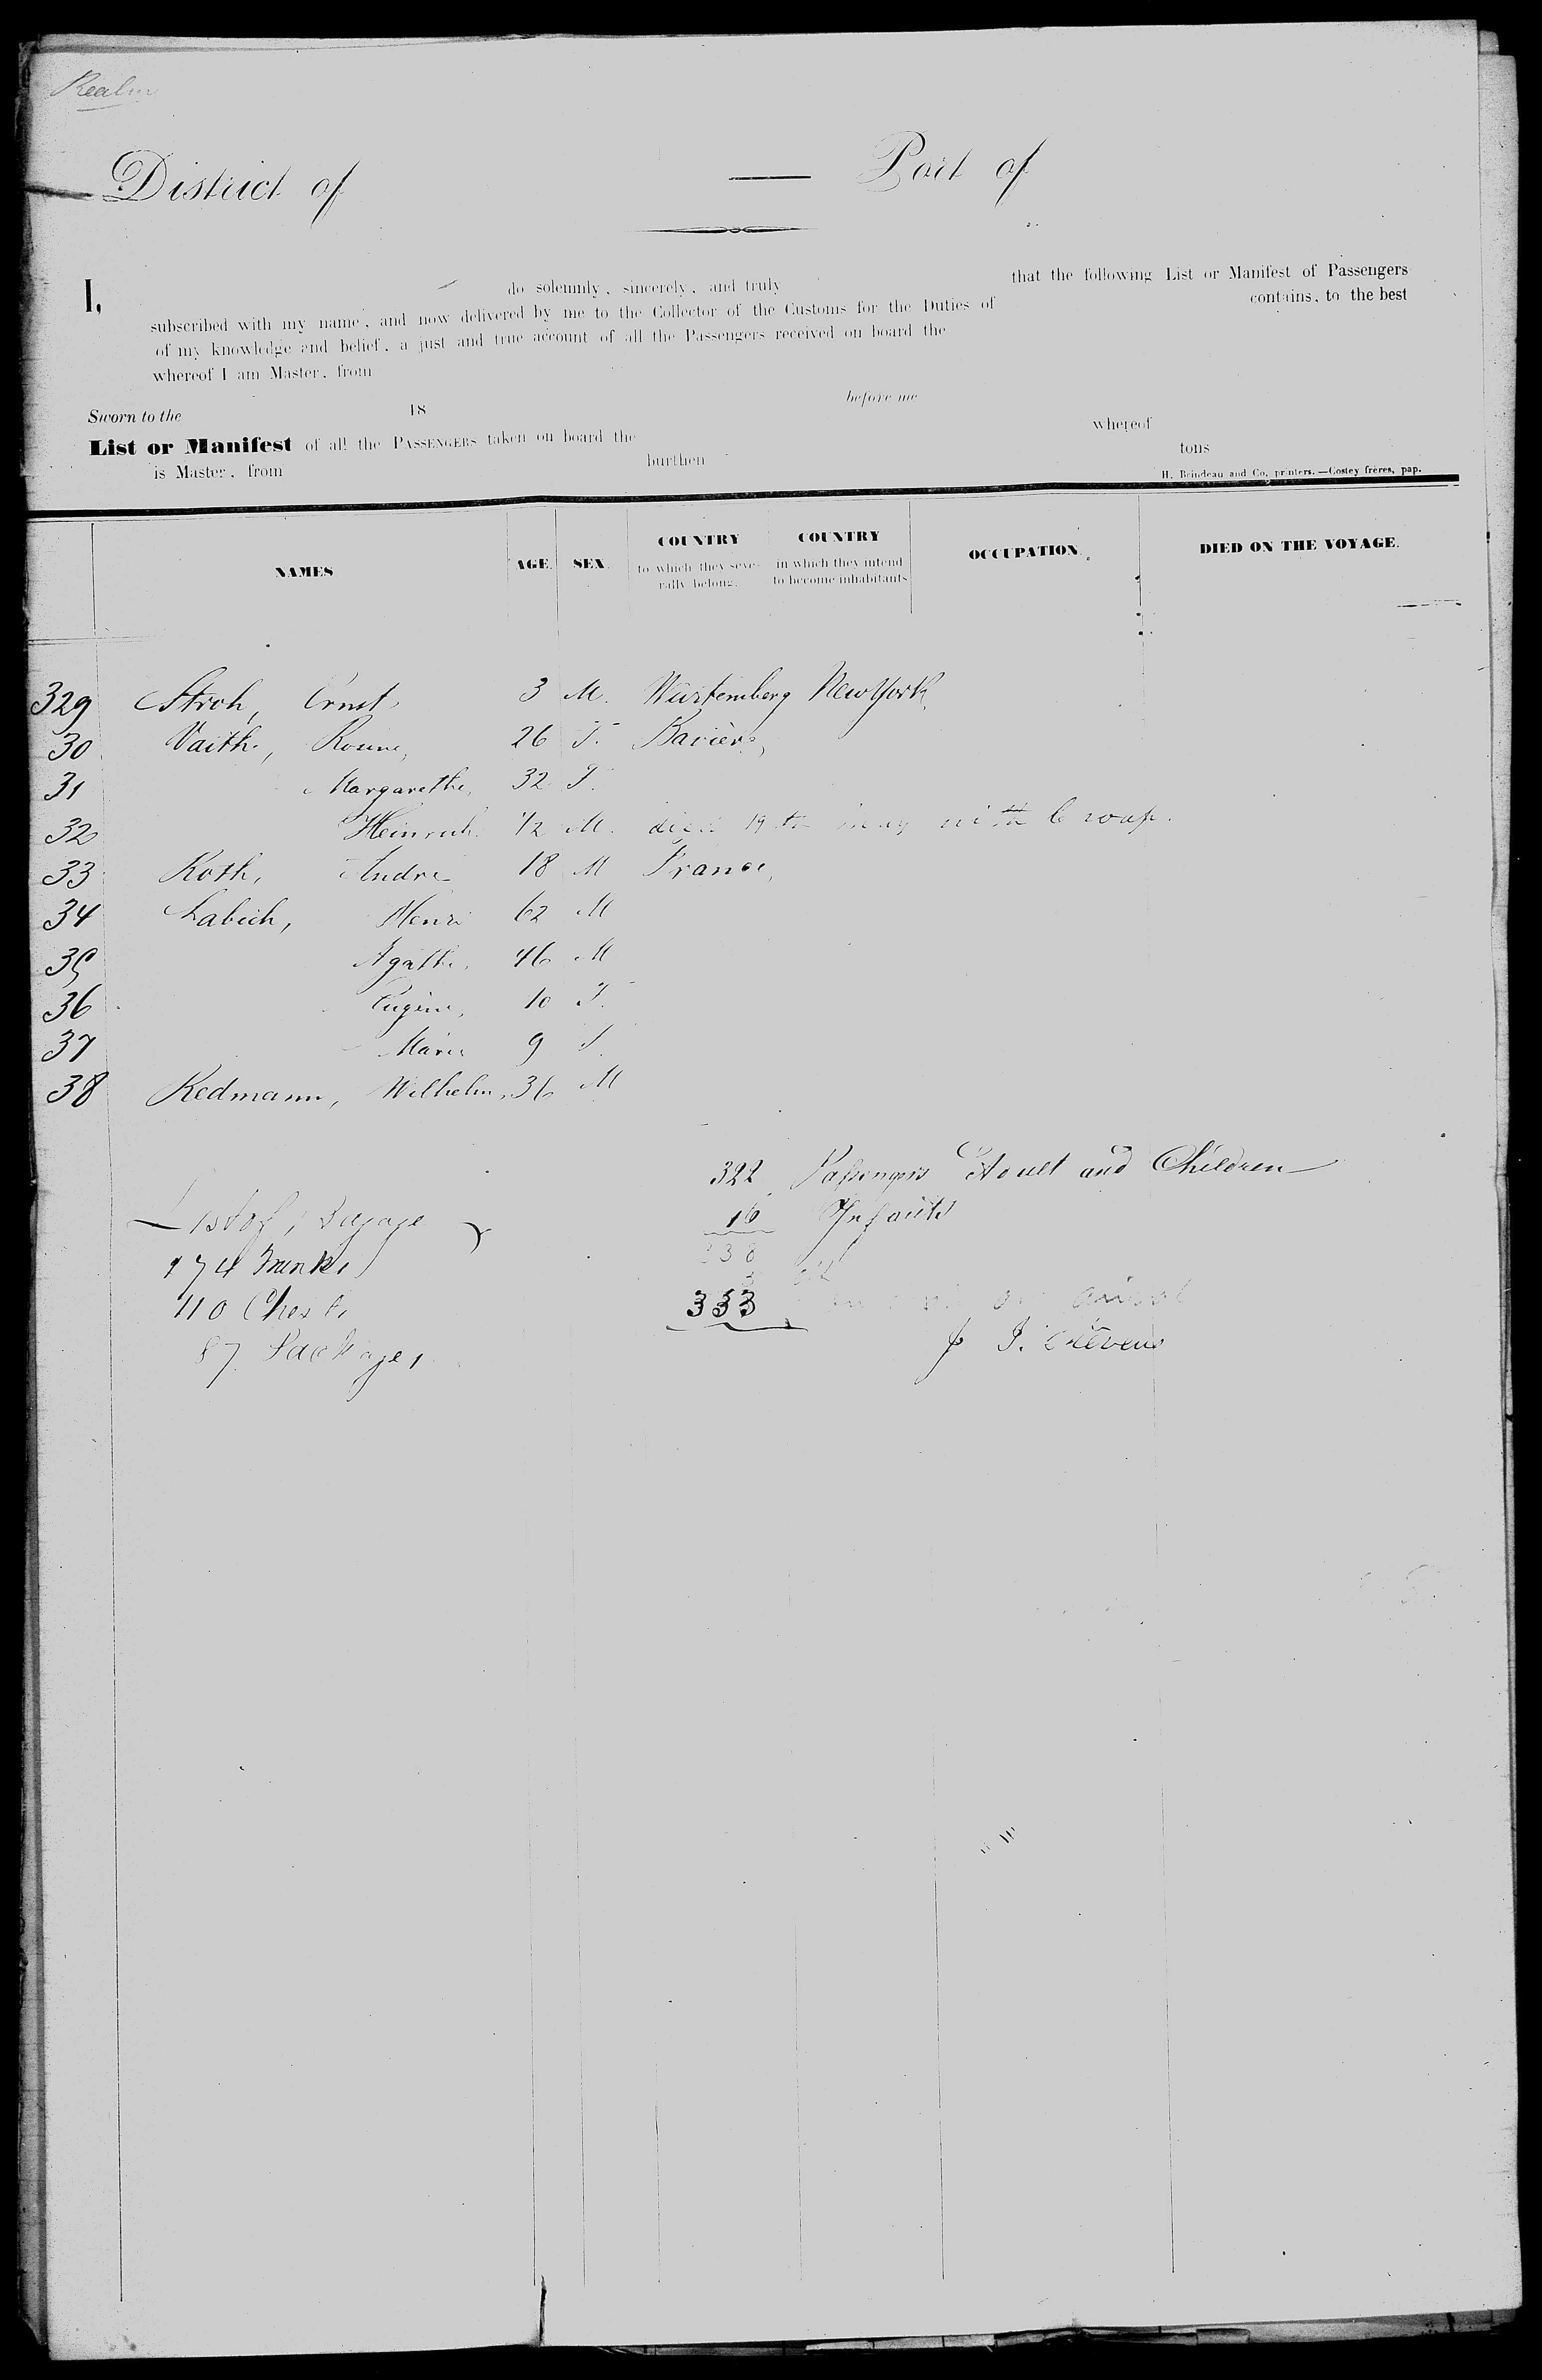 Realm
District of — Port of
I, do solemnly, sincerely, and truly that the following List or Manifest of Passengers
subscribed with my name, and now delivered by me to the Collector of the Customs for the Duties of contains, to the best
of my knowledge and belief, a just and true account of all the Passengers received on board the
whereof I am Master, from
Sworn to the 18 before me
List or Manifest of all the PASSENGERS taken on board the whereof
is Master, from burthen tons
H. Brindeau and Co, printers.—Costey frères, pap.
NAMES AGE. SEX. COUNTRY to which they severally belong. COUNTRY in which they intend to become inhabitants OCCUPATION. DIED ON THE VOYAGE.
329 Stroh, Ernst 3 M. Würtemberg New York
30 Vaith, 26 F. Bavière,
31 Margarethe, 32 F.
32 Heinrich 1/2 M. died 19th may with Croup.
33 Roth, Andre 18 M France,
34 Labich, Henri 62 M
35 Agathe, 46 M
36 Eugène, 10 F.
37 Marie 9 F.
38 Redmann, Wilhelm, 36 M
322 Passengers Adult and Children
16 Infants
338
3
333
J. Stevens
List of Bagage
174 Trunks
110 Chests
87 Packages